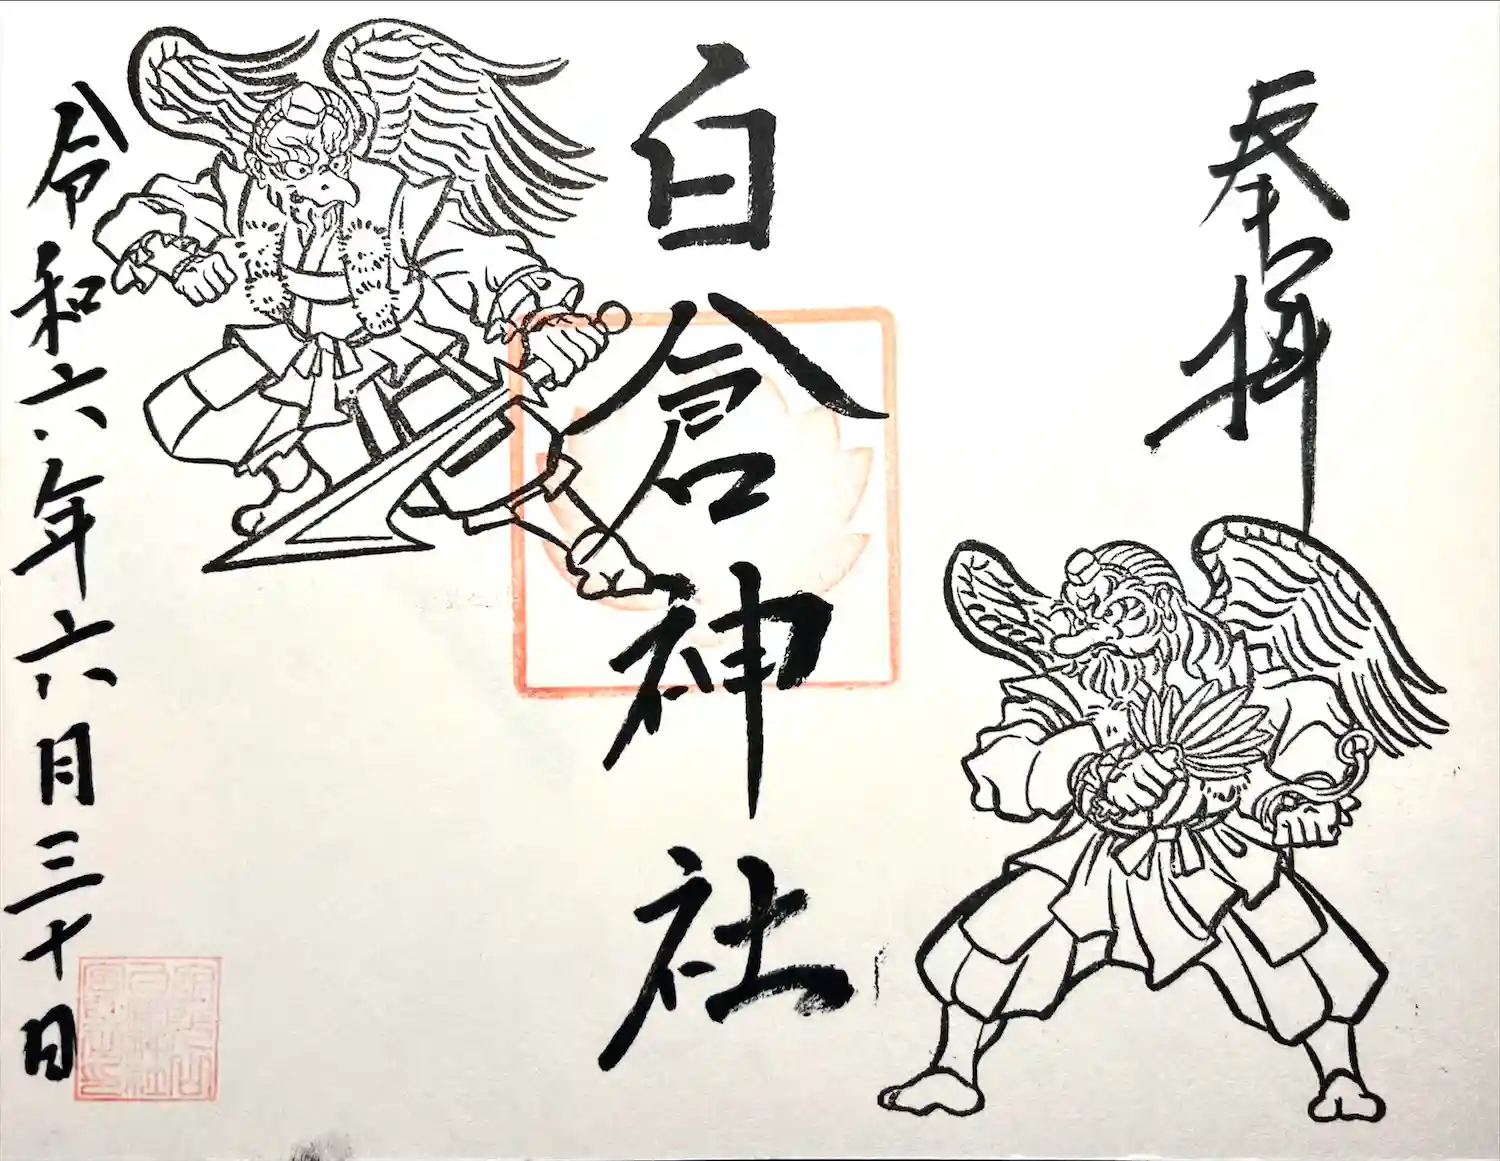 奉拝
白倉神社
令和六年六月三十日